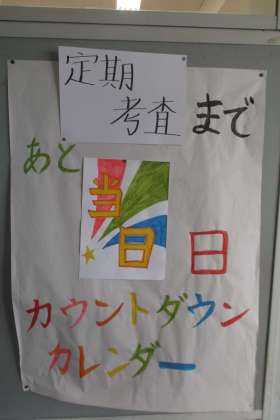 定期
考査まで
あと
当日 日
カウントダウン
カレンダー